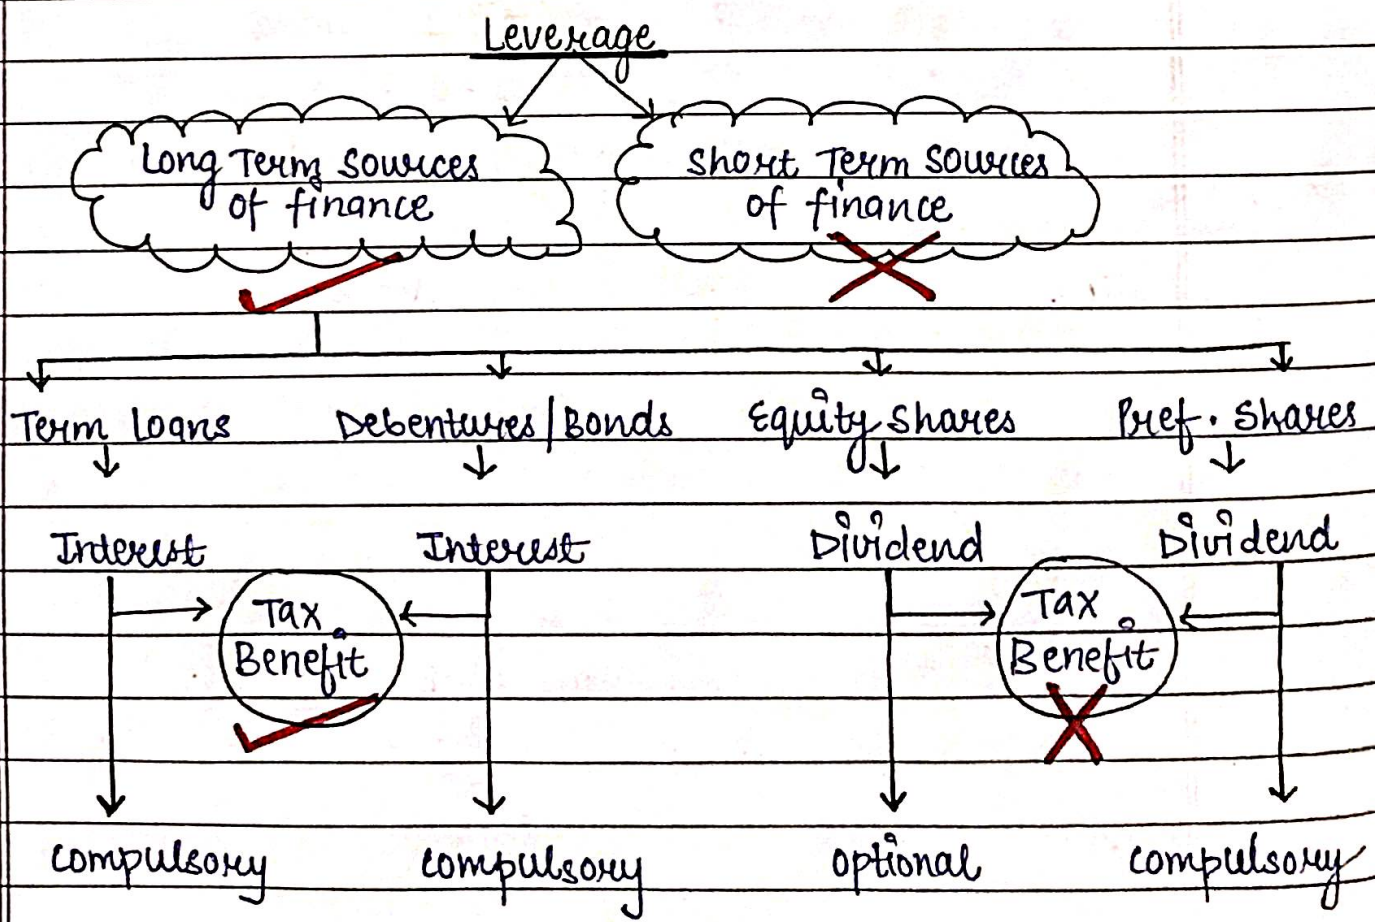 Leverage
Long Term Sources
of finance
Short Term Sources
of finance
Term Loans
Debentures/Bonds
Equity Shares
Pref. Shares
Interest
Interest
Dividend
Dividend
Tax
Benefit
Tax
Benefit
compulsory
compulsory
optional
compulsory